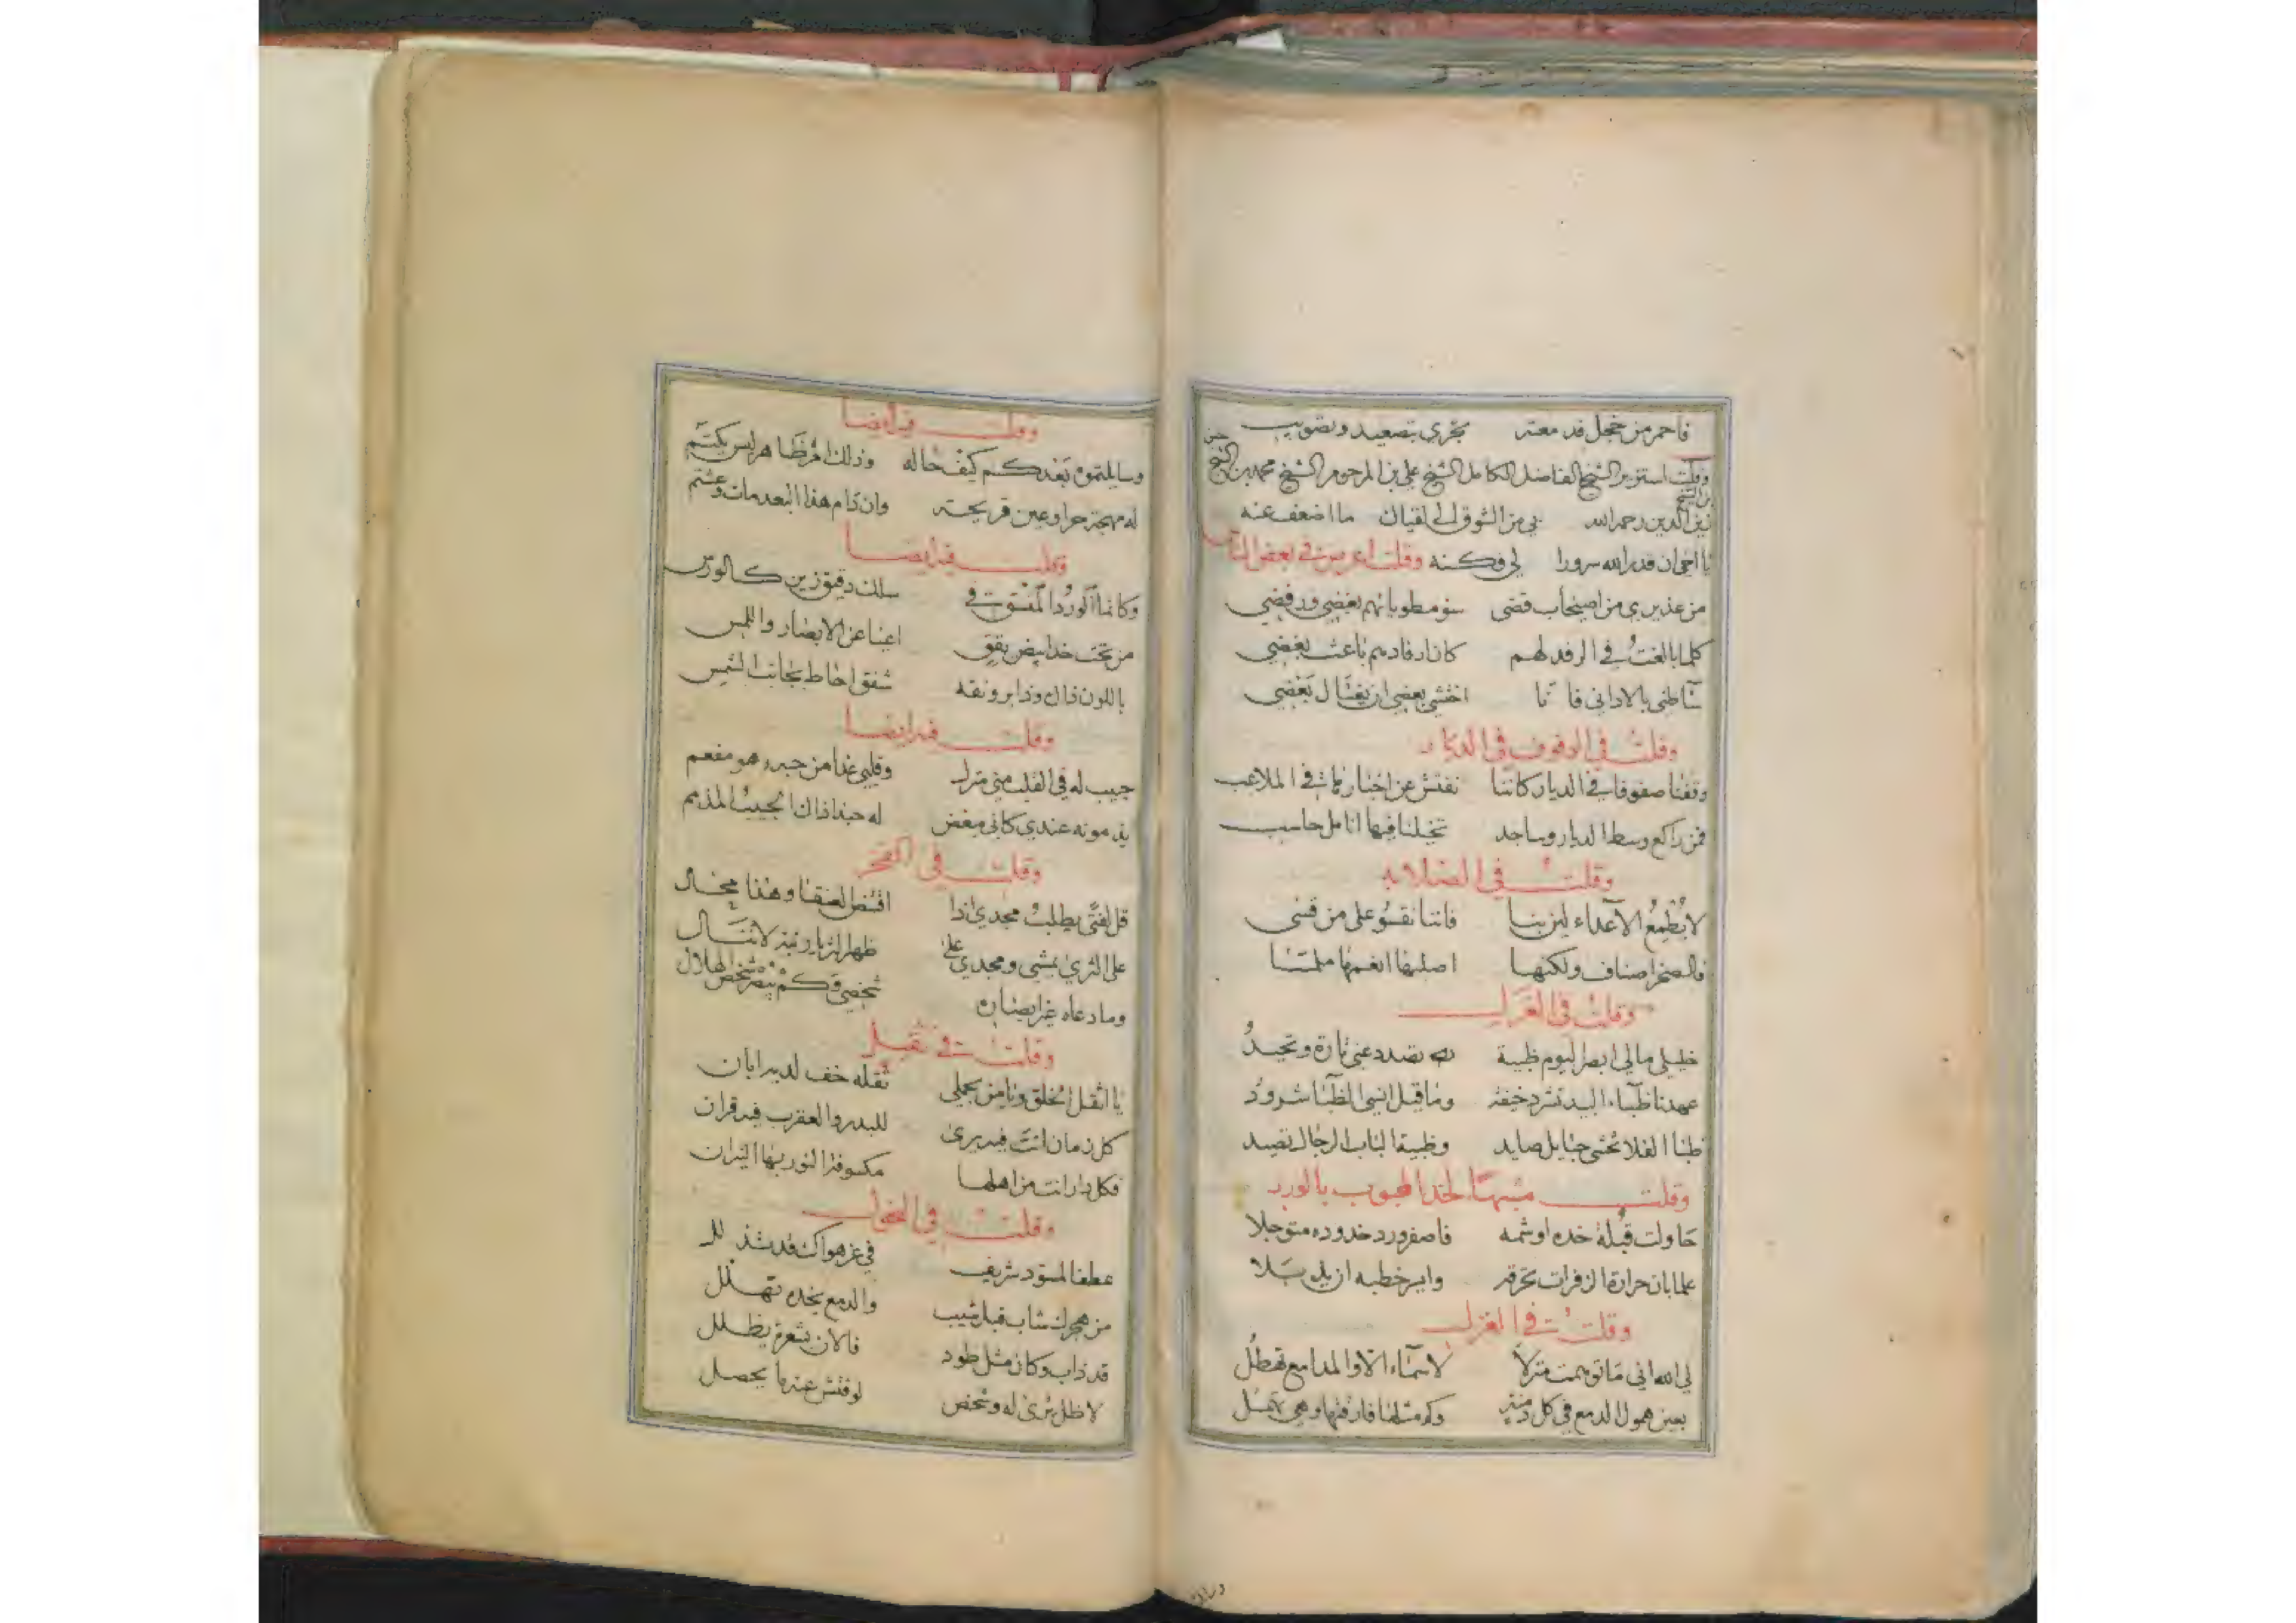 فاحمر من خجل قد معتر تجري بتصعيد وتصويب
وقلت استزير الشيخ الفاضل الكامل الشيخ علي بن المرحوم الشيخ محمد بن الشيخ حسن بن الشيخ
زين الدين رحمه الله بي من الشوق الى لقياك ما اضعف عنه
يا اخي ان قدر الله سرورا لي فكنه وقلت اعرض في بعض الناس
من عذيري من اصيحاب قضى سنو مطوياتهم بغضي ورفضي
كلما بالغت في الرفد لهم كان ارفادهم باعث بغضي
وقلت في الوقوف في الديار
وقفنا صفوفا في الديار كاننا نفتش عن اخبارنا في الملاعب
فمن راكع وسط الديار وساجد تخيلنا فيها انامل حاسب
وقلت في الصلابه
لا يطمع الاعداء لين بنا فاننا نقسو على من قسى
فالصخر اصناف ولكنها اصلبها انعمها ملمسا
وقلت في الغزل
خليلي مالي ابصر اليوم ظبية تصدد عني تارة وتحيد
عهدنا ظباء البيد تشرد خيفة وما قبل انسي الظبا شرود
ظبا الفلا تخشى حبايل صايد وظبية الباب الرجال تصيد
وقلت مشبها لخد المحبوب بالورد
حاولت قبلة خده او شمه فاصفر ورد خدوده متوجلا
علما بان حرارة الزفرات تحرقه
وقلت في الغزل
لي الله اني ما توهمت منزلا لاسماء الا والمدامع تهطل
بعين همول الدمع في كل دمنة
وقلت فيه ايضا
وسايلتموه بعدكم كيف حاله وذلك امر ظاهر ليس يكتم
له مهجة حرا وعين قريحة وان دام هذا البعد مات وعشتم
وقلت فيه ايضا
وكانما الورد المفتوت في سلك دقيق زين كالورس
من تحت خد ابيض يقق اعيا عن الابصار واللمس
باللون ذاك وذا برونقه شفق احاط بجانب الشمس
وقلت فيه ايضا
حبيب له في القلب مني منزل وقلبي غدا من حبه وهو مفعم
يذمونه عندي كاني مبغض له حبذا ذاك الحبيب المذمم
وقلت في الفخر
قل لفتى يطلب مجدي اذا اقتنص العنقا وهذا محال
على الثرى يمشي ومجدي على
شخصي وكم يبصر شخص الهلال
وقلت في ثقيل
يا اثقل الخلق ويا من بجهلي ثقله خف لديه ابان
كل زمان انت فيه يرى للبدر والعقرب فيه قران
فكل دار انت من اهلها مكسوفة النور بها النيران
وقلت في النحول
في عز هواك قد تذلل
من هجرك شاب قبل شيب والدمع بخده تهلل
قد ذاب وكان مثل طود فالان بشعرة يظلل
لا ظل يرى له وشخص لو فتش عنه ما يحصل